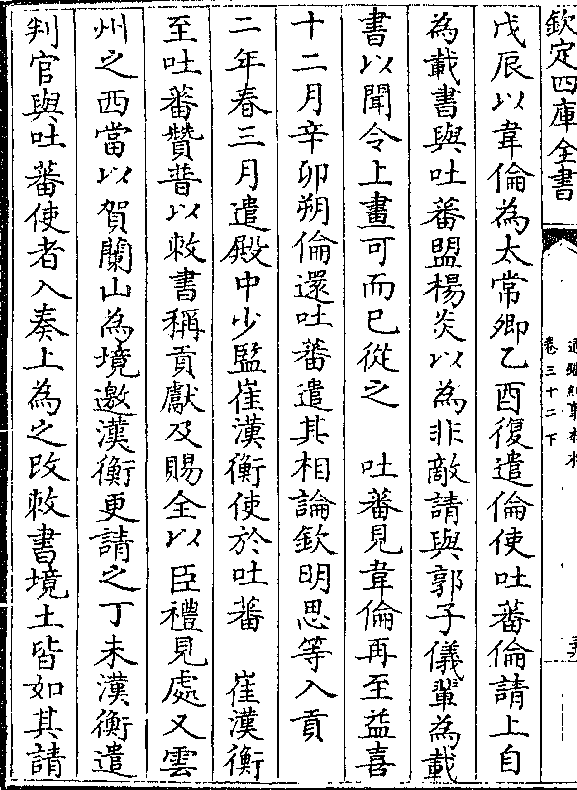 欽定四庫全書
通鑑紀事本末
卷三十二下
戊辰以韋倫為太常卿乙酉復遣倫使吐蕃倫請上自
為載書與吐蕃盟楊炎以為非敵請與郭子儀輩為載
書以聞令上畫可而已從之　吐蕃見韋倫再至益喜
十二月辛卯朔倫還吐蕃遣其相論欽明思等入貢
二年春三月遣殿中少監崔漢衡使於吐蕃　崔漢衡
至吐蕃贊普以敕書稱貢獻及賜全以臣禮見處又雲
州之西當以賀蘭山為境邀漢衡更請之丁未漢衡遣
判官與吐蕃使者入奏上為之改敕書境土皆如其請